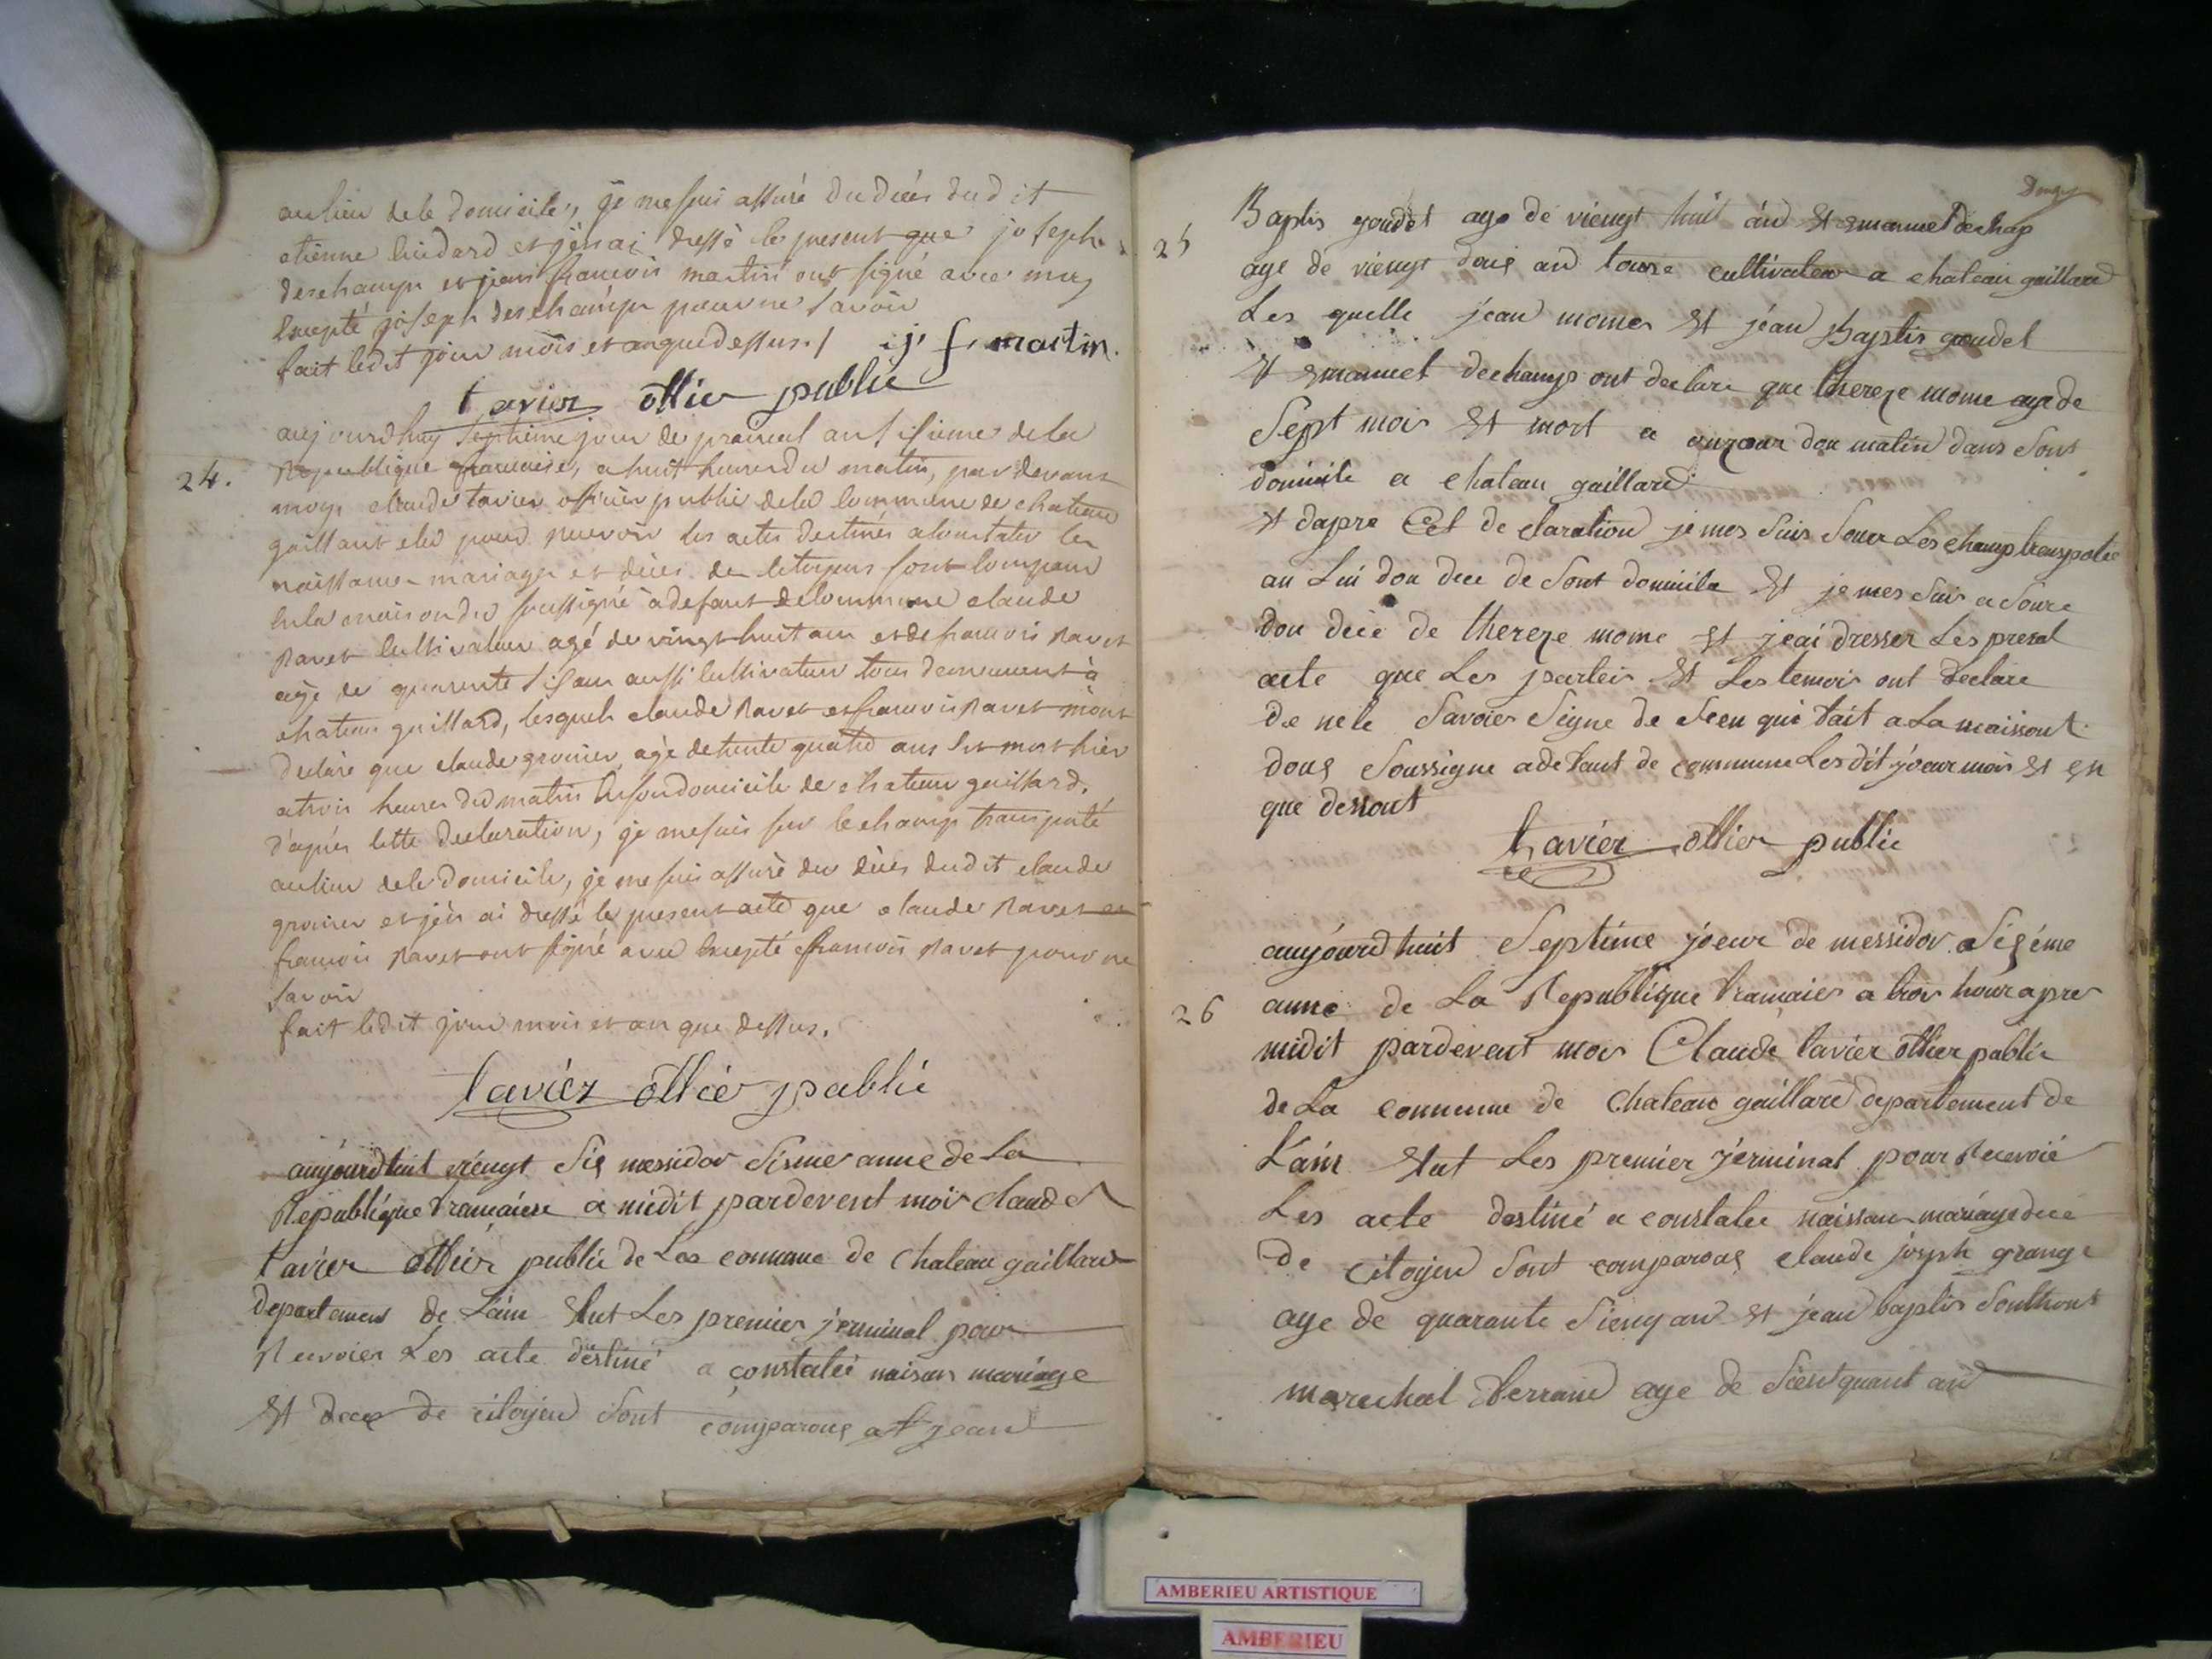 au lieu de le domicile, je me suis assuré du decès dudit
etienne lindard et j'en ai dressé le present que joseph
deschamps et jean françois martin ont signé avec moy
Excepté joseph deschamps pour ne savoir
fait ledit jour mois et an que dessus./ j. f. martin.
tavier ottier publie
aujourdhuy septieme jour de prairial an sisieme de la
24.
Republique francaise, a huit heures du matin, par devant
moy claude tavier officier public de la commune de chateau
gaillard elu pour recevoir les actes destinés a constater les
naissances mariages et décès des citoyens sont comparu
en la maison du soussigné a defaut de commune claude
ravet cultivateur agé de vingt huit ans et de francois ravet
agé de quarente sis ans aussi cultivateur tous demeurent à
chateau gaillard, lesquels claude ravet et francois ravet mont
declaré que claude gronier, agé de trente quatre ans est mort hier
a trois heures du matin en son domicile de chateau gaillard.
d'après cette declaration, je me suis sur le champ transporté
au lieu de le domicile, je me suis assuré du décès dudit claude
gronier et j'en ai dressé le present acte que claude ravet et
francois ravet ont signé avec excepté francois ravet pour ne
savoir
fait ledit jour mois et an que dessus.
tavier ottier publie
aujourdhuit viengt sis messidor sisme anné de La
Republique francaise a midit pardevent mois claude
tavier ottier publie de Las commune de chateau gaillard
departement de Lain Elut Les premier jerminal pour
Recevoier Les acte déstiné a constatée naisans mariage
Et dece de citoyen sont comparous at jean
25
Baptis goudet age de viengt huit and Et emanuel dechap
age de viengt dous and tousse cultivateur a chateau gaillard
Les quelle jean momes Et jéan Baptis goudet
Et emanuel dechamps ont declare que thereze mome age de
Sept mois Et mort a ouzour dou matin dans sont
domicile a chateau gaillard
Et dapre Cet declaration je mes suis sour Les champ transpotee
au Lui dou dece de sont domicile Et je mes suis a soure
dou décé de thereze mome Et jeai dresser Les presat
acte que Les parteis Et Les temois ont declare
de nele savoies signe de seen qui fait a La maissont
dous soussigne a defaut de commune Les dit joeur mois Et en
que dessout
tavier ottier publie
26
aujourdhuit septime joeur de messidor a siséme
anne de La Republique francaies a trois houre apres
midit pardevent mois Claude tavier ottier publie
de La commune de chateau gaillard departement de
L'ain Elut Les premier jérminal pour Recevoié
Les acte destiné a constatee naissans mariage decé
de citoyen sont comparous claude joseph grange
age de quarante siengt and Et jean baptis southont
marechal ferrand age de sientquant and
AMBERIEU ARTISTIQUE
AMBERIEU